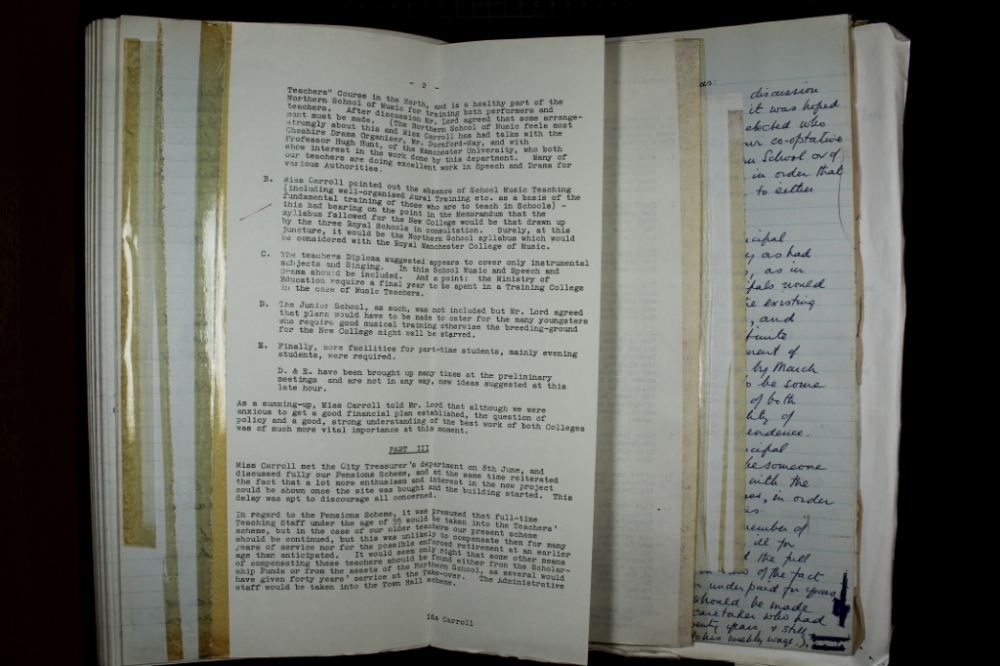 - 2 -
Teachers" Course in the North, and is a healthy part of the
Northern School of Music for training both performers and
teachers. After discussion Mr. Lord agreed that some arrange-
ment must be made. (The Northern School of Music feels most
strongly about this and Miss Carroll has had talks with the
Cheshire Drama Organiser, Mr. Durnford-May, and with
Professor Hugh Hunt, of the Manchester University, who both
show interest in the work done by this department. Many of
our teachers are doing excellent work in Speech and Drama for
various Authorities.
B. Miss Carroll pointed out the absence of School Music Teaching
(including well-organised Aural Training etc. as a basis of the
fundamental training of those who are to teach in Schools) -
this had bearing on the point in the Memorandum that the
syllabus followed for the New College would be that drawn up
by the three Royal Schools in consultation. Surely, at this
juncture, it would be the Northern School syllabus which would
be considered with the Royal Manchester College of Music.
C. The teachers Diploma suggested appears to cover only instrumental
subjects and Singing. In this School Music and Speech and
Drama should be included. And a point: the Ministry of
Education require a final year to be spent in a Training College
in the case of Music Teachers.
D. The Junior School, as such, was not included but Mr. Lord agreed
that plans would have to be made to cater for the many youngsters
who require good musical training otherwise the breeding-ground
for the New College might well be starved.
E. Finally, more facilities for part-time students, mainly evening
students, were required.
D. & E. have been brought up many times at the preliminary
meetings and are not in any way, new ideas suggested at this
late hour.
As a summing-up, Miss Carroll told Mr. Lord that although we were
anxious to get a good financial plan established, the question of
policy and a good, strong understanding of the best work of both Colleges
was of much more vital importance at this moment.
PART III
Miss Carroll met the City Treasurer's department on 8th June, and
discussed fully our Pensions Scheme, and at the same time reiterated
the fact that a lot more enthusiasm and interest in the new project
could be shown once the site was bought and the building started. This
delay was apt to discourage all concerned.
In regard to the Pensions Scheme, it was presumed that full-time
Teaching Staff under the age of 55 would be taken into the Teachers'
scheme, but in the case of our older teachers our present scheme
should be continued, but this was unlikely to compensate them for many
years of service nor for the possible enforced retirement at an earlier
age than anticipated. It would seem only right that some other means
of compensating these teachers should be found either from the Scholar-
ship Funds or from the assets of the Northern School, as several would
have given forty years' service at the Take-over. The Administrative
staff would be taken into the Town Hall scheme.
Ida Carroll
discussion
it was hoped
elected who
co-optative
School or of
in order that
to either
as had
, as in
would
existing
, and
of
by March
be some
of both
of
be someone
with the
, in order
of
ill for
the full
of the fact
under paid for years
should be made
caretaker who had
years, & still
weekly wage.),